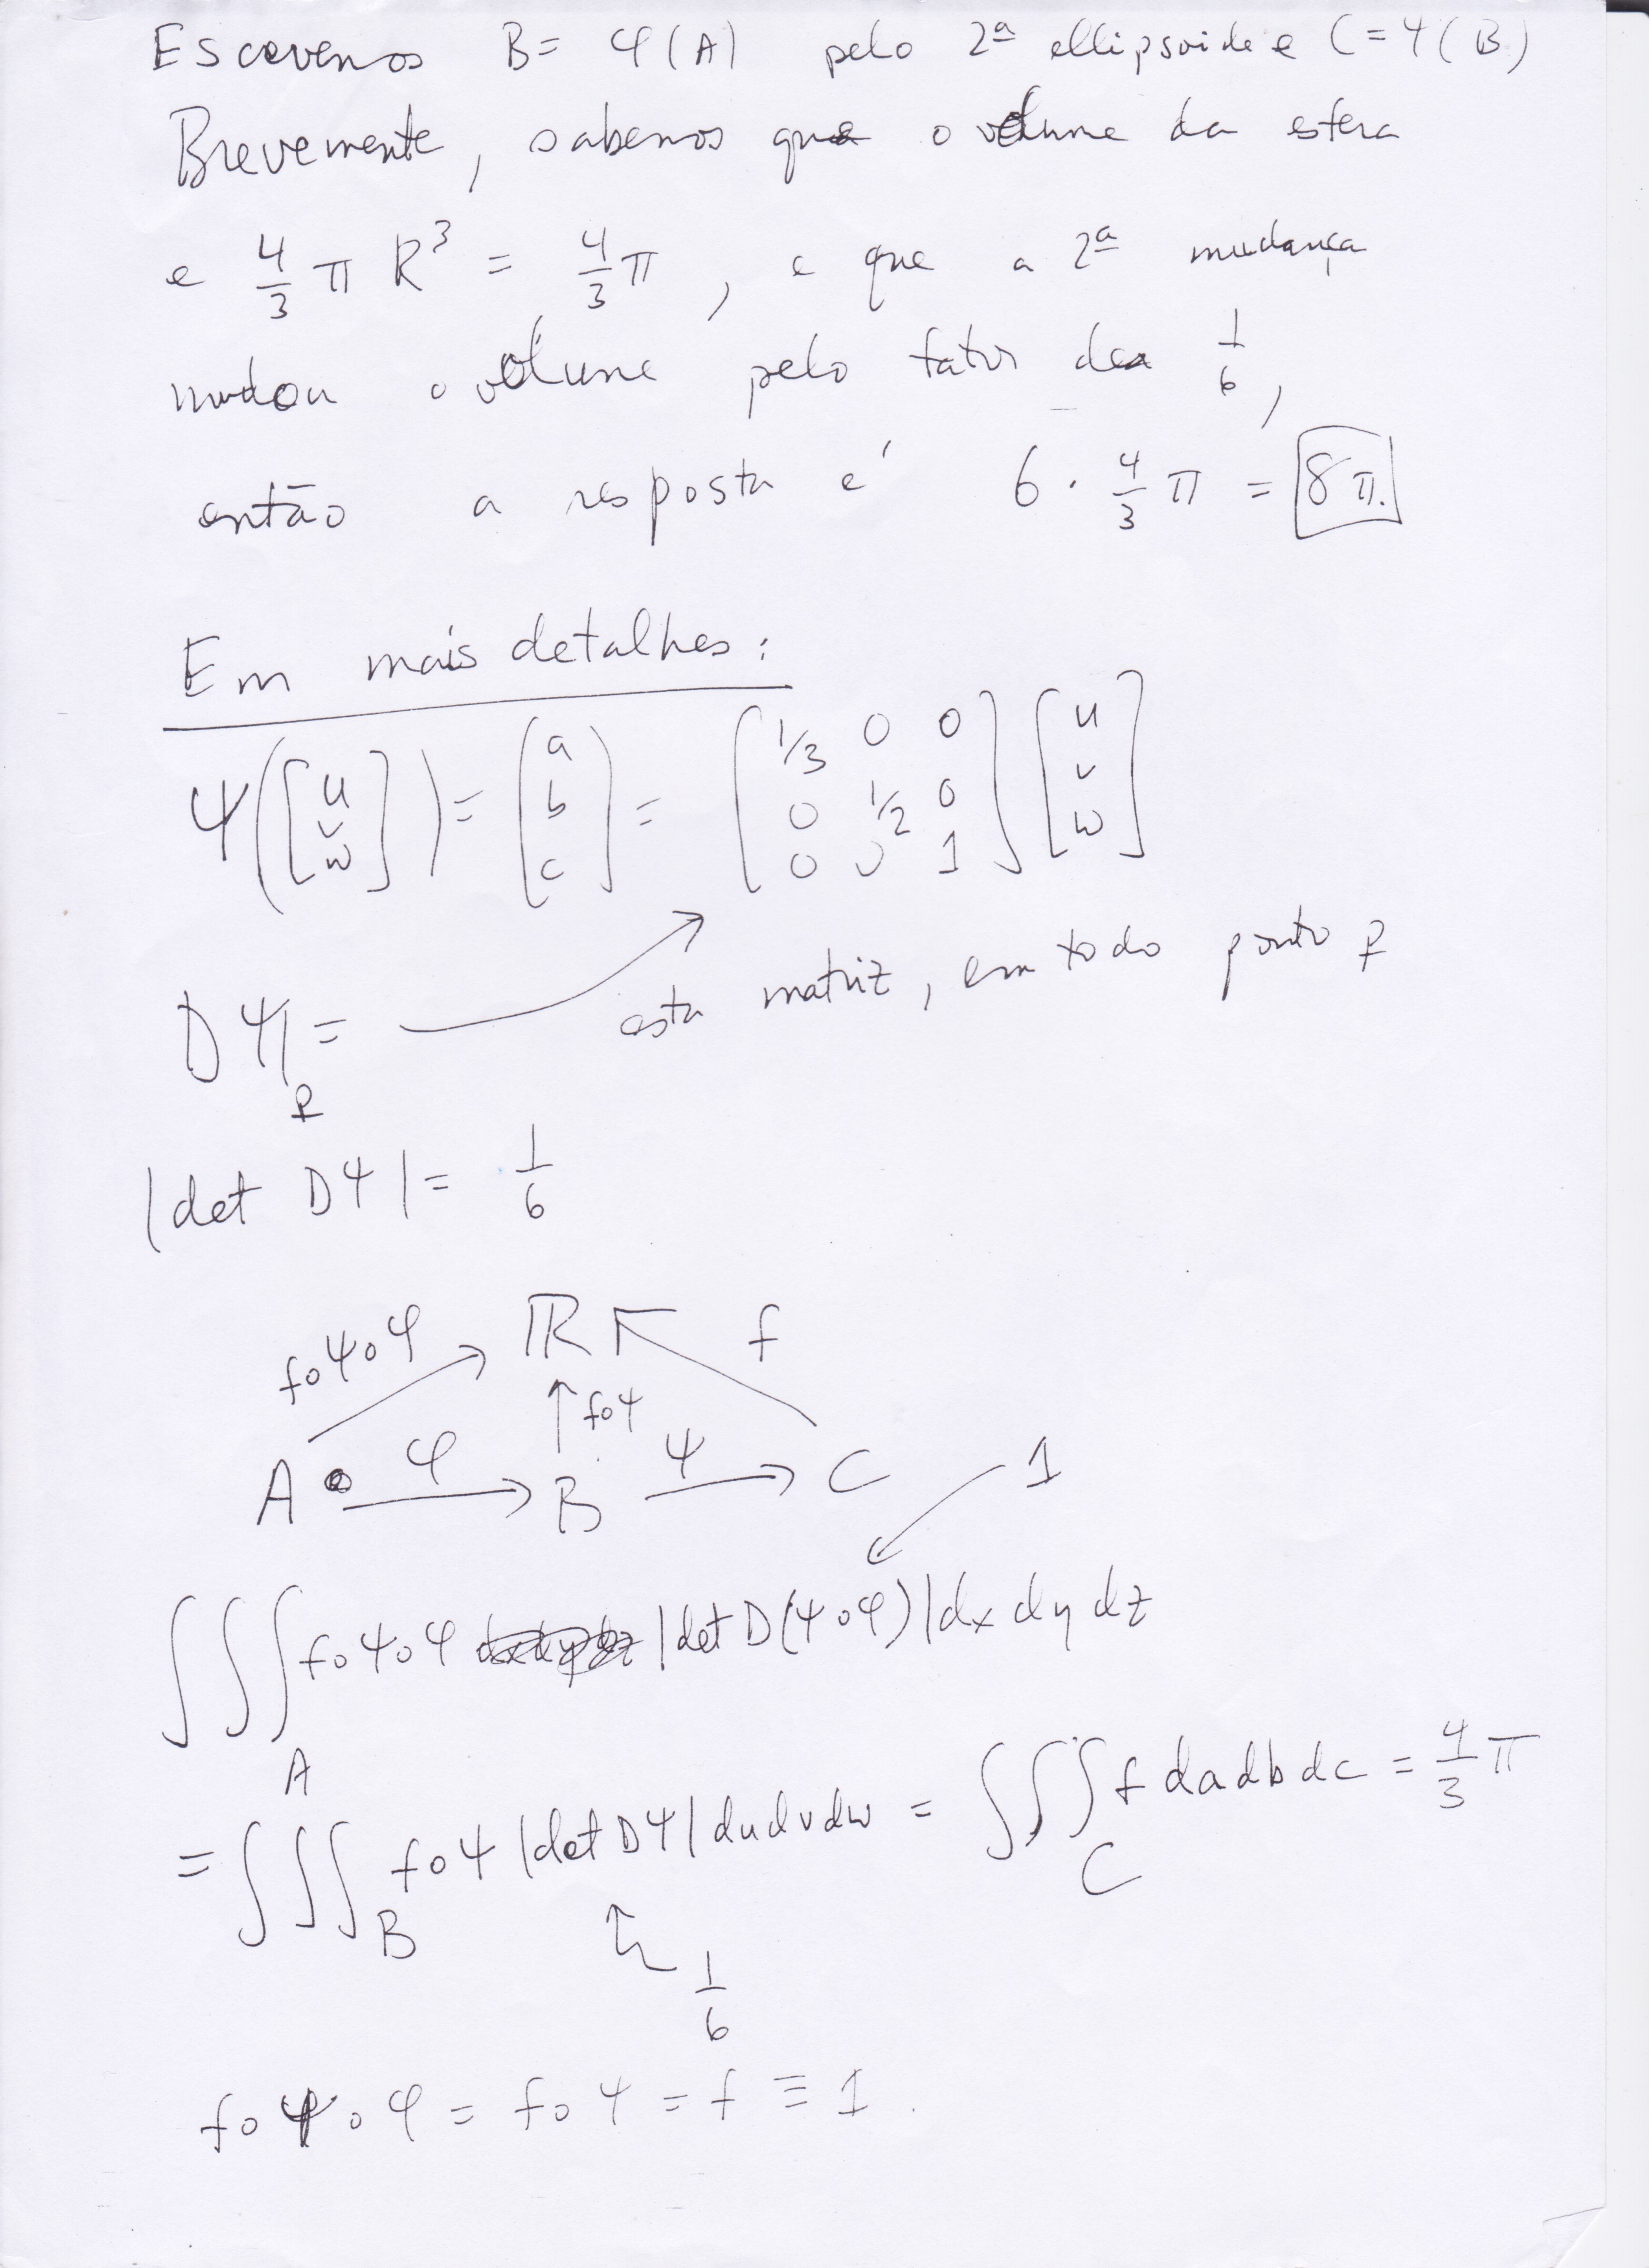 Escrevemos B = φ(A) pelo 2ª ellipsoide e C = ψ(B)
Brevemente, sabemos que o volume da esfera
e 4/3 π R³ = 4/3 π, e que a 2ª mudança
mudou o volume pelo fator de 1/6,
então a resposta é 6 · 4/3 π = 8π.
Em mais detalhes:
ψ([u v w]) = [a b c] = [1/3 0 0; 0 1/2 0; 0 0 1] [u v w]
Dψ|p = esta matriz, em todo ponto p
|det Dψ| = 1/6
f∘ψ∘φ ℝ f
f∘ψ
A φ B ψ C 1
∫∫∫_A f∘ψ∘φ |det D(ψ∘φ)| dx dy dz
= ∫∫∫_B f∘ψ |det Dψ| du dv dw = ∫∫∫_C f da db dc = 4/3 π
1/6
f∘ψ∘φ = f∘ψ = f ≡ 1.